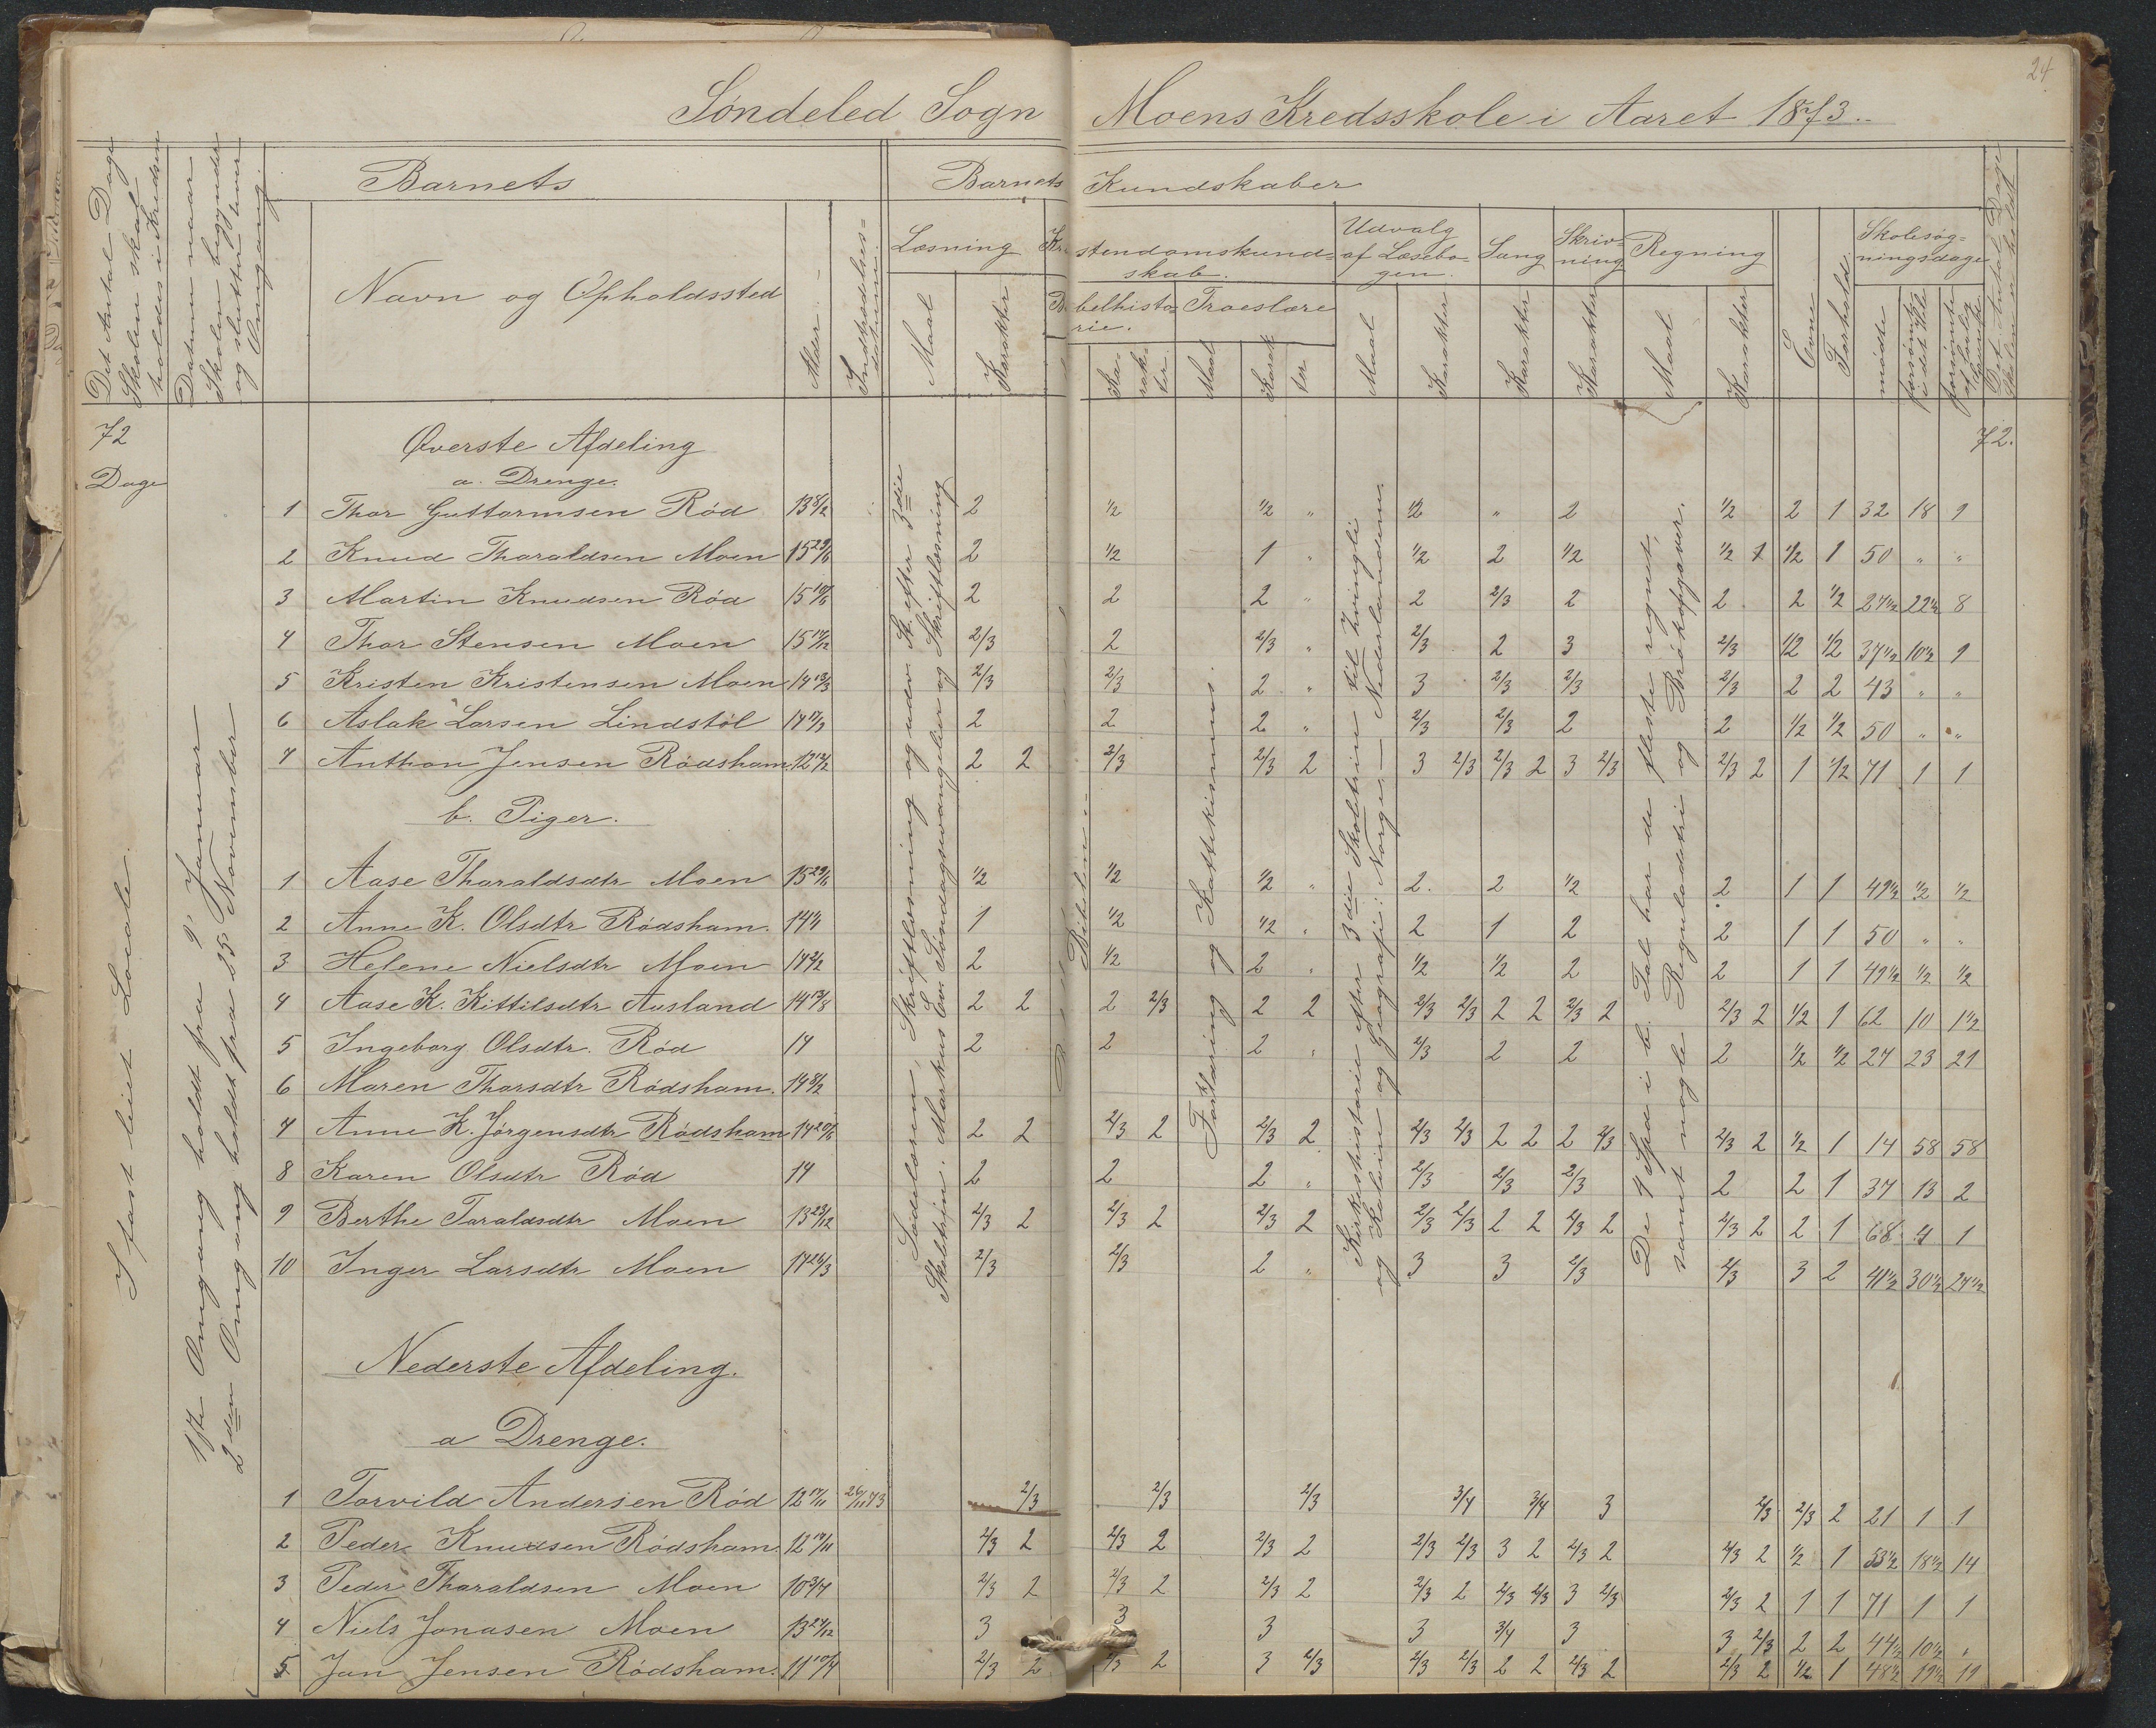 24
Søndeled Sogn Moens Kredsskole i Aaret 1873.
Det Antal Dage Skolen skal holdes i Kredsen
Datum naar Skolen begynder og slutter hver Omgang.
Barnets
Navn og Opholdssted
Alder
Indtrædelses-datum.
Barnets Kundskaber
Læsning
Maal
Karakter
Kristendomskund-skab.
Bibelhisto-rie.
Ka-rak-ter.
Troeslære
Maal
Karak ter
Udvalg af Læsebo-gen.
Maal
Karakter
Sang
Karakter
Skriv-ning
Karakter
Regning
Maal
Karakter
Evne
Forhold.
Skolesøg-ningsdage
mødte
forsømte i det Hele
forsømte af lovlig Grund
Det Antal Dage Skolen er holdt
72 Dage
72.
I fast leiet Locale.
1ste Omgang holdt fra 9 Januar
2den Omgang holdt fra 25 November
Øverste Afdeling
a. Drenge.
1 Thor Guttormsen Rød 13 8/2 2 1/2 1/2 " 1/2 " 2 1/2 2 1 32 18 9
2 Knud Tharaldsen Moen 15 29/6 2 1/2 1 " 1/2 2 1/2 1/2 1 1/2 1 50 " "
3 Martin Knudsen Rød 15 10/6 2 2 2 " 2 2/3 2 2 2 1/2 27 1/2 22 1/2 8
4 Thor Stensen Moen 15 17/12 2/3 2 2/3 " 2/3 2 3 2/3 1/2 1/2 37 1/2 10 1/2 9
5 Kristen Kristensen Moen 14 13/3 2/3 2/3 2 " 3 2/3 2/3 2/3 2 2 43 " "
6 Aslak Larsen Lindstøl 14 17/9 2 2 2 " 2/3 2/3 2 2 1/2 1/2 50 " "
7 Anthon Jensen Rødsham. 12 12/2 2 2 2/3 2/3 2 3 2/3 2/3 2 3 2/3 2/3 2 1 1/2 71 1 1
b. Piger.
1 Aase Tharaldsdtr Moen 15 29/6 1/2 1/2 1/2 " 2. 2 1/2 2 1 1 49 1/2 1/2 1/2
2 Anne K. Olsdtr Rødsham. 14 1 1/2 1/2 " 2 1 2 2 1 1 50 " "
3 Helene Nielsdtr Moen 14 2/2 2 1/2 2 " 1/2 1/2 2 2 1 1 49 1/2 1/2 1/2
4 Aase K. Kittilsdtr Ausland 14 13/8 2 2 2 2/3 2 2 2/3 2/3 2 2 2/3 2 2/3 2 1/2 1 62 10 1 1/2
5 Ingeborg Olsdtr. Rød 14 2 2 2 " 2/3 2 2 2 1/2 1/2 27 23 21
6 Maren Thorsdtr Rødsham. 14 8/2
7 Anne K. Jørgensdtr Rødsham 14 20/6 2 2 2/3 2 2/3 2 2/3 2/3 2 2 2 2/3 2/3 2 1/2 1 14 58 58
8 Karen Olsdtr Rød 14 2 2 2 " 2/3 2/3 2/3 2 2 1 37 13 2
9 Berthe Taraldsdtr Moen 13 23/12 2/3 2 2/3 2 2/3 2 2/3 2/3 2 2 2/3 2 2/3 2 2 1 68 4 1
10 Inger Larsdtr Moen 14 26/3 2/3 2/3 2 " 3 3 2/3 2/3 3 2 41 1/2 30 1/2 27 1/2
Skriftlæsning og udv. St. efter 3die
Skoletrin. Markus Ev. Søndagsevangelier og Skriftlæsning
Bibelen.
Forklaring og Kattekismus.
Kirkehistorie efter 3die Skoletrin til Zwinglii
og Kolvin og Geografi: Norge, Nederlandene.
De 4 Spec i b. Tal har de fleste regnet,
samt nogle Reguladetri og Brøkopgaver.
Nederste Afdeling.
a Drenge.
1 Torvild Andersen Rød 12 17/11 26/11 73 2/3 2/3 2/3 3/4 3/4 3 2/3 2/3 2 21 1 1
2 Peder Knudsen Rødsham. 12 17/11 2/3 2 2/3 2 2/3 2 2/3 2/3 3 2 2/3 2 2/3 2 1/2 1 53 1/2 18 1/2 14
3 Peder Tharaldsen Moen 10 3/7 2/3 2 2/3 2 2/3 2 2/3 2 2/3 2/3 3 2/3 2/3 2 1 1 71 1 1
4 Niels Jonasen Moen 13 27/12 3 3 3 3 3/4 3 3 2/3 2 2 44 1/2 10 1/2 "
5 Jan Jensen Rødsham. 11 10/4 2/3 2 2/3 2 3 2/3 2/3 2/3 2 2 2/3 2 2/3 2 1/2 1 48 1/2 19 1/2 19